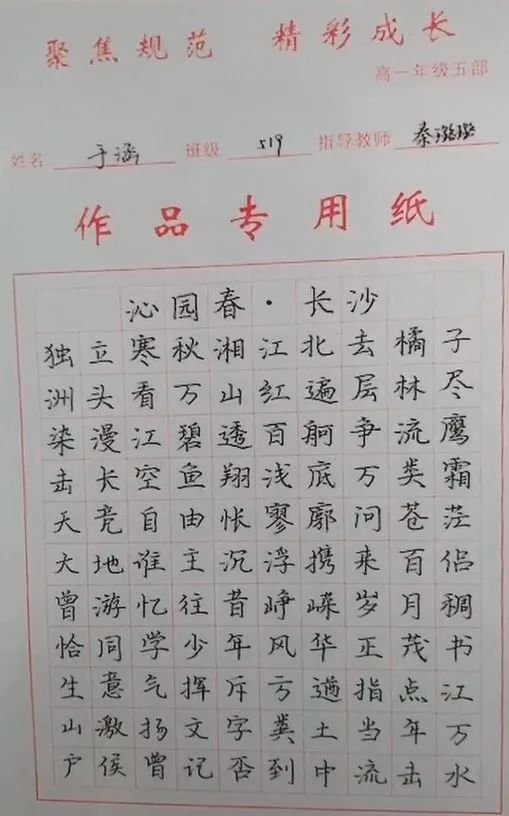 聚焦规范 精彩成长
高一年级五部
姓名 于涵 班级 519 指导教师 秦璐璐
作品专用纸
沁园春·长沙
独立寒秋湘江北去橘子
洲头看万山红遍层林尽
染漫江碧透百舸争流鹰
击长空鱼翔浅底万类霜
天竞自由怅寥廓问苍茫
大地谁主沉浮携来百侣
曾游忆往昔峥嵘岁月稠
恰同学少年风华正茂书
生意气挥斥方遒指点江
山激扬文字粪土当年万
户侯曾记否到中流击水